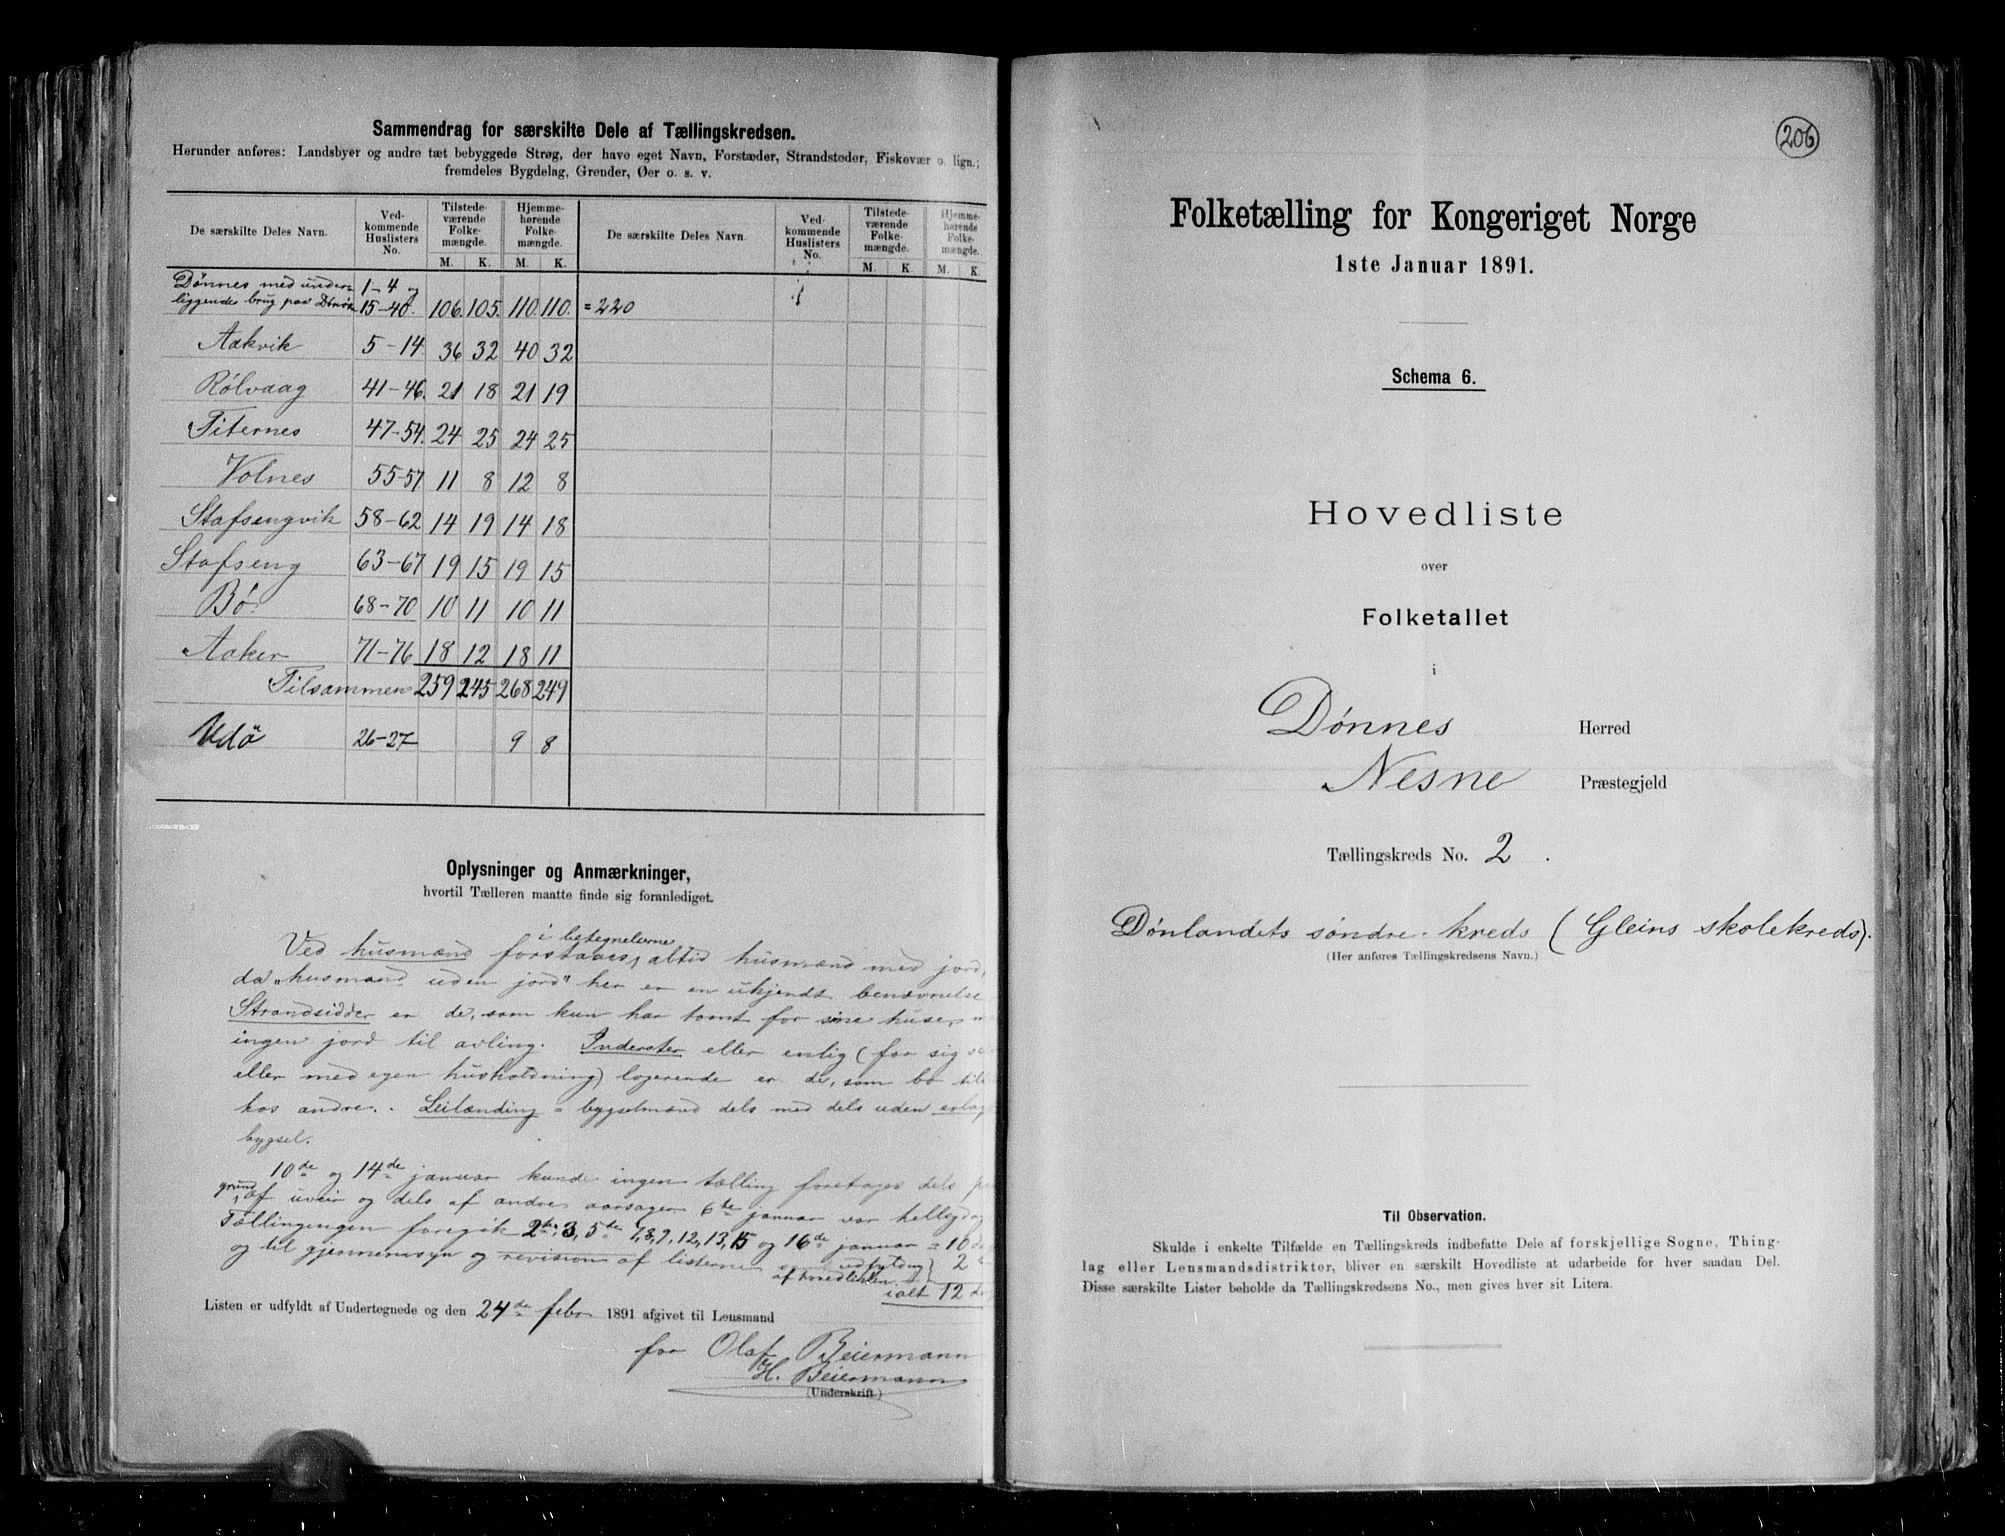 Sammendrag for særskilte Dele af Tællingskredsen.
Herunder anføres: Landsbyer og andre tæt bebyggede Strøg, der have eget Navn, Forstæder, Strandsteder, Fiskevær o. lign.;
fremdeles Bygdelag, Grender, Øer o. s. v.
De særskilte Deles Navn. Ved-kommende Huslisters No. Tilstede-værende Folke-mængde. Hjemme-hørende Folke-mængde. De særskilte Deles Navn. Ved-kommende Huslisters No. Tilstede-værende Folke-mængde. Hjemme-hørende Folke-mængde.
M. K. M. K. M. K. M. K.
Dønnes med under- 1-4 og
liggende brug paa 15-40. 106. 105. 110. 110. = 220
Aakvik 5-14. 36 32 40 32
Rölvaag 41-46. 21 18 21 19
Titernes 47-54. 24 25 24 25
Volnes 55-57. 11 8 12 8
Stafsengvik 58-62 14 19 14 18
Stafseng 63-67 19 15 19 15
Bø 68-70 10 11 10 11
Aaker 71-76 18 12 18 11
Tilsammen 259 245 268 249
Udö 26-27 9 8
Oplysninger og Anmærkninger,
hvortil Tælleren maatte finde sig foranlediget.
i betegnelserne
Ved husmænd forstaaes, altid husmænd med jord,
da "husmand uden jord" her er en ukjendt benævnelse
Strandsidder er de, som kun har tomt for sine huse,
ingen jord til avling. Inderster eller enlig (for sig
eller med egen husholdning) logerende er de, som bo til
hos andre. Leilænding = bygselmænd dels med dels uden
bygsel.
10de og 14de januar kunde ingen tælling foretages dels
grund af uveir og dels af andre aarsager 6te januar var helligdag
Tællingengen foregik 2de, 3, 5te 7, 8, 9, 12, 13, 15 og 16de januar = 10
og til gjennemsyn og revision af listerne udfylding 2
af hovedlisten
ialt 12
Listen er udfyldt af Undertegnede og den 24de febr 1891 afgivet til Lensmand
for Olaf Beiermann
H. Beiermann
(Underskrift.)
206
Folketælling for Kongeriget Norge
1ste Januar 1891.
Schema 6.
Hovedliste
over
Folketallet
i
Dønnes Herred
Nesne Præstegjeld
Tællingskreds No. 2.
Dønlandets søndre kreds (Gleins skolekreds).
(Her anføres Tællingskredsens Navn.)
Til Observation.
Skulde i enkelte Tilfælde en Tællingskreds indbefatte Dele af forskjellige Sogne, Thing-
lag eller Lensmandsdistrikter, bliver en særskilt Hovedliste at udarbeide for hver saadan Del.
Disse særskilte Lister beholde da Tællingskredsens No., men gives hver sit Litera.